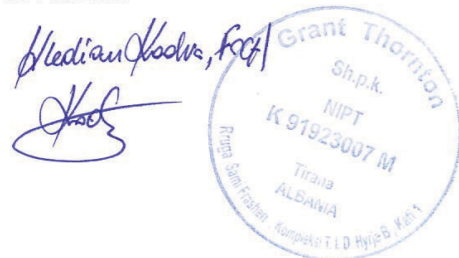 Kledian Kodra, FCCA
Grant Thornton
Sh.p.k.
NIPT
K 91923007 M
Tirana
ALBANIA
Rruga Sami Frasheri, Kompleksi T.I.D Hyrja B, Kati 1